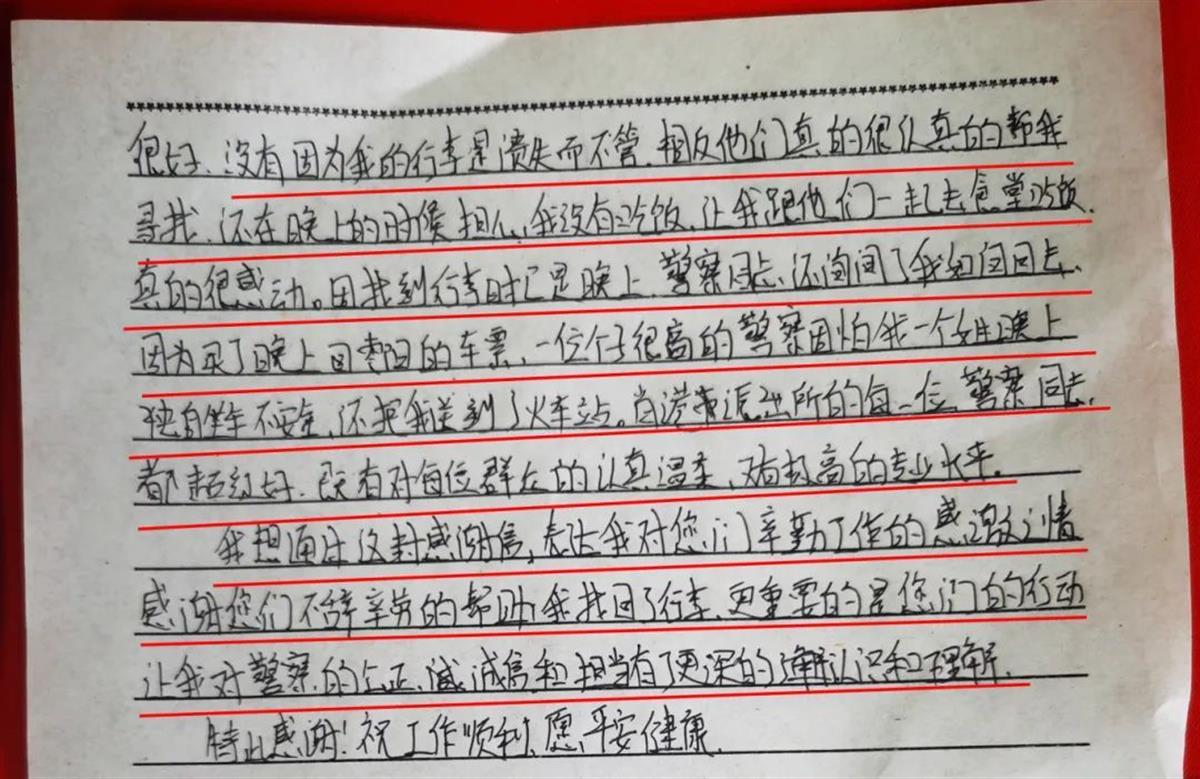 很好、没有因为我的行李是遗失而不管、相反他们真的很认真的帮我
寻找、还在晚上的时候担心我没有吃饭、让我跟他们一起去食堂吃饭、
真的很感动。因找到行李时已是晚上、警察同志、还询问了我如何回去、
因为买了晚上回枣阳的车票、一位个子很高的警察因怕我一个女生晚上
独自坐车不安全、还把我送到了火车站。肖港来派出所的每一位警察同志、
都超级好、既有对每位群众的认真温柔、又有极高的专业水平、
我想通过这封感谢信、表达我对您们辛勤工作的感激之情
感谢您们不辞辛劳的帮助我找回了行李、更重要的是您们的行动
让我对警察的公正、诚信和担当有了更深的认识和理解、
特此感谢！祝工作顺利、愿平安健康、